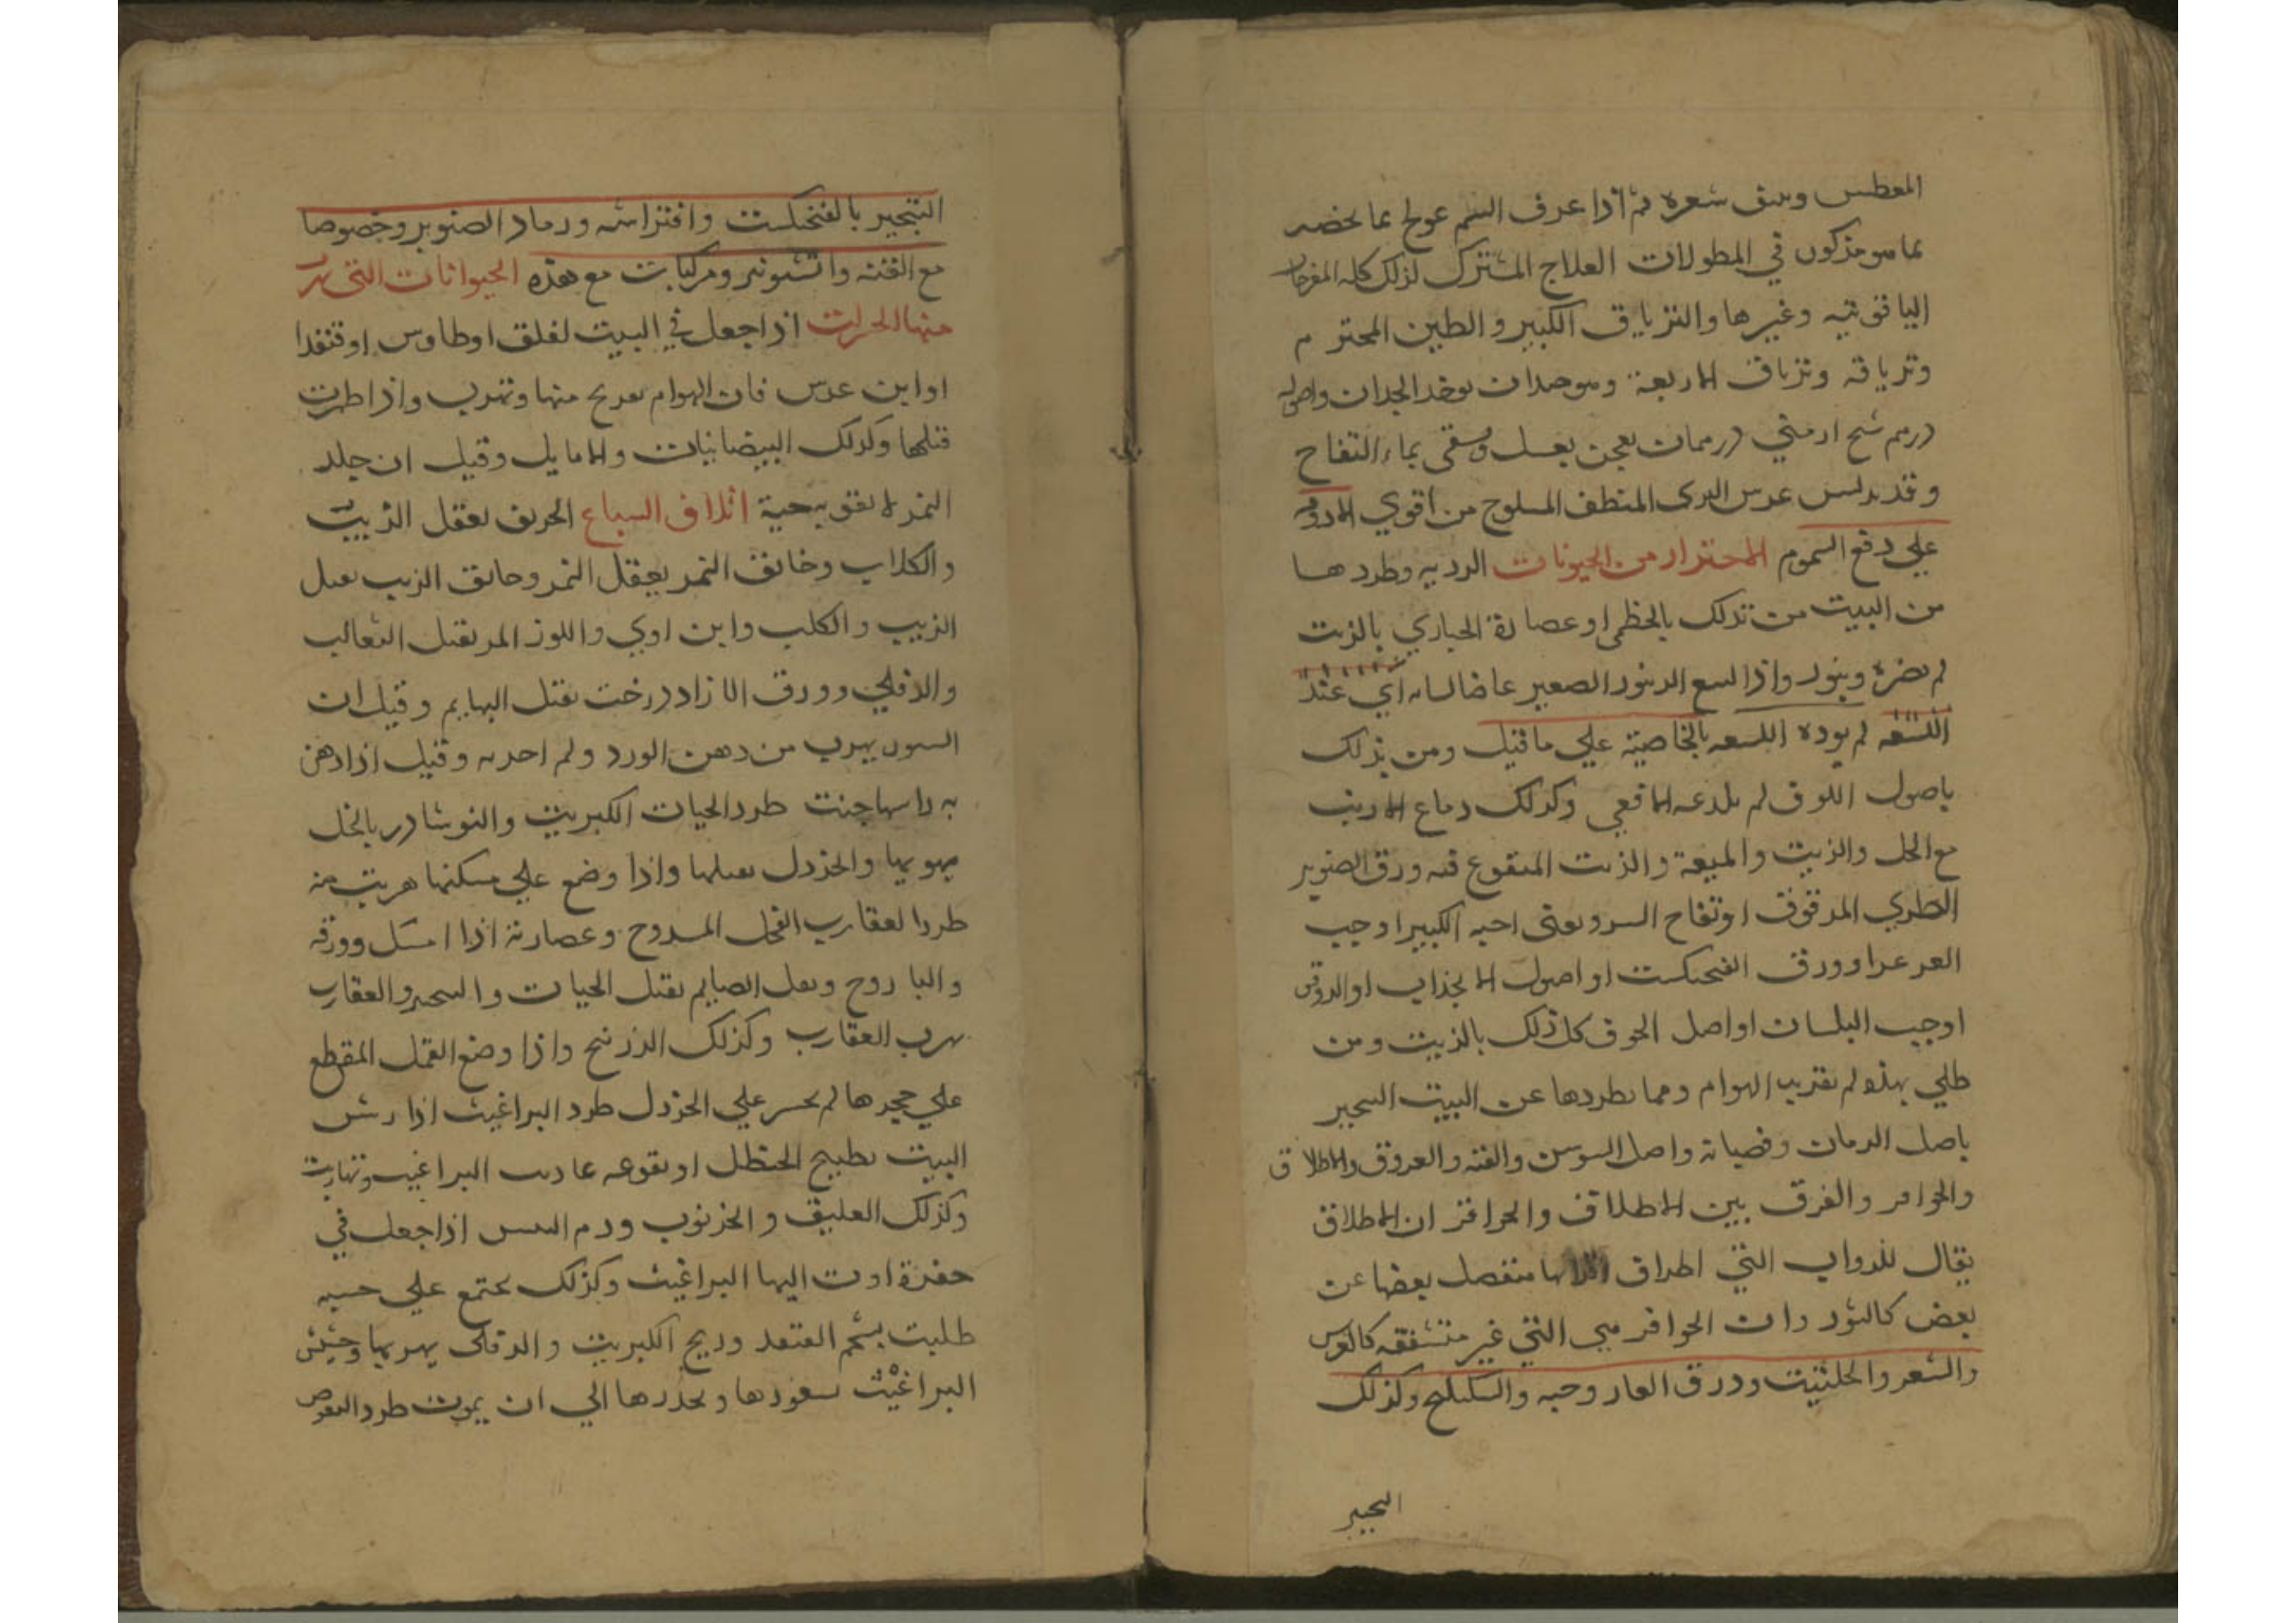 المعطس وينتف شعره ثم اذا عرف السم عولج بما يخصه
بما هو مذكور في المطولات العلاج المشترك لذلك كله المفرحات
الياقوتيه وغيرها والترياق الكبير والطين المختوم
وترياقه وترياق الاربعة وهو جيدان يوخد
درهم شيح ارمني درهمان يعجن بعسل ويسقى بماء التفاح
وقد عرس البرى المنظف المسلوخ من اقوي الادويه
علي دفع السموم الاحتراز من الحيونات الرديه وطردها
من البيت من تدلك بالخطمى او عصارة الخبازي بالزيت
لم يضره واذا لسع الزنبور الصغير عاضا لسانه اي عند
اللسعه لم يوده اللسعه بالخاصيه علي ما قيل ومن تدلك
باصول اللوف لم يلدغه الافعي وكذلك دماغ الارنب
مع الخل والزيت والميعة والزيت المنقوع فيه ورق الصنوبر
الطري المدقوق او تفاح السرو يعنى احبه الكبير او حب
العرعر او ورق الفنجكست او اصول الانجذاب او الدوقس
او حب البلسان او اصل الحوف كل ذلك بالزيت ومن
طلي بهذه لم يقربه الهوام ومما يطردها عن البيت التبخير
باصل الرمان وقضبانه واصل السوسن والقنه والعروق والاظلاق
والحوافر والفرق بين الاظلاف والحوافر ان الاظلاق
يقال للدواب التي اطراف منفصل بعضها عن
بعض كالثور وان الحوافر هي التي غير متشققه كالفرس
والشعر والحلتيت وورق الغار وحبه والسكبينج وكذلك
التبخير
التبخير بالفنجكست وافتراشه ورماد الصنوبر وخصوصا
مع القنه والشونيز ومركبات مع هذه الحيوانات التي تهرب
منها الحشرات اذا جعل في البيت لقلق او طاوس او قنفدا
او ابن عرس فان الهوام منها وتهرب واذا ظهرت
قتلها وكذلك البيضانيات والايايل وقيل ان جلد
النمر لا يقربه حية اتلاف السباع الخربق يقتل الذيب
والكلاب وخانق النمر يقتل النمر وخانق الذيب يقتل
الذيب والكلب وابن اوي واللوز المر يقتل الثعالب
والدفلي وورق الازاددرخت يقتل البهايم وقيل ان
السنور يهرب من دهن الورد ولم اجربه وقيل اذا دهن
به راسها جنت طرد الحيات الكبريت والنوشادر بالخل
يهربها والخردل يقتلها واذا وضع علي مسكنها هربت منه
طرد العقارب الفجل المشدوخ وعصارته اذا وورقه
والباذروج وتفل الصايم يقتل الحيات والعقارب
يهرب العقارب وكذلك الزرنيخ واذا وضع الفجل المقطع
علي جحرها لم يجسر علي الخروج طرد البراغيث اذا رش
البيت بطبيخ الحنظل او نقوعه البراغيث وتهاربت
وكذلك العليق والخرنوب ودم التيس اذا جعل في
حفرة اوت اليها البراغيث وكذلك يجتمع علي خشبه
طليت بشحم القنفد وريح الكبريت والدفلى يهربها وحشيش
البراغيث ويخدرها الي ان يموت طرد البعوض